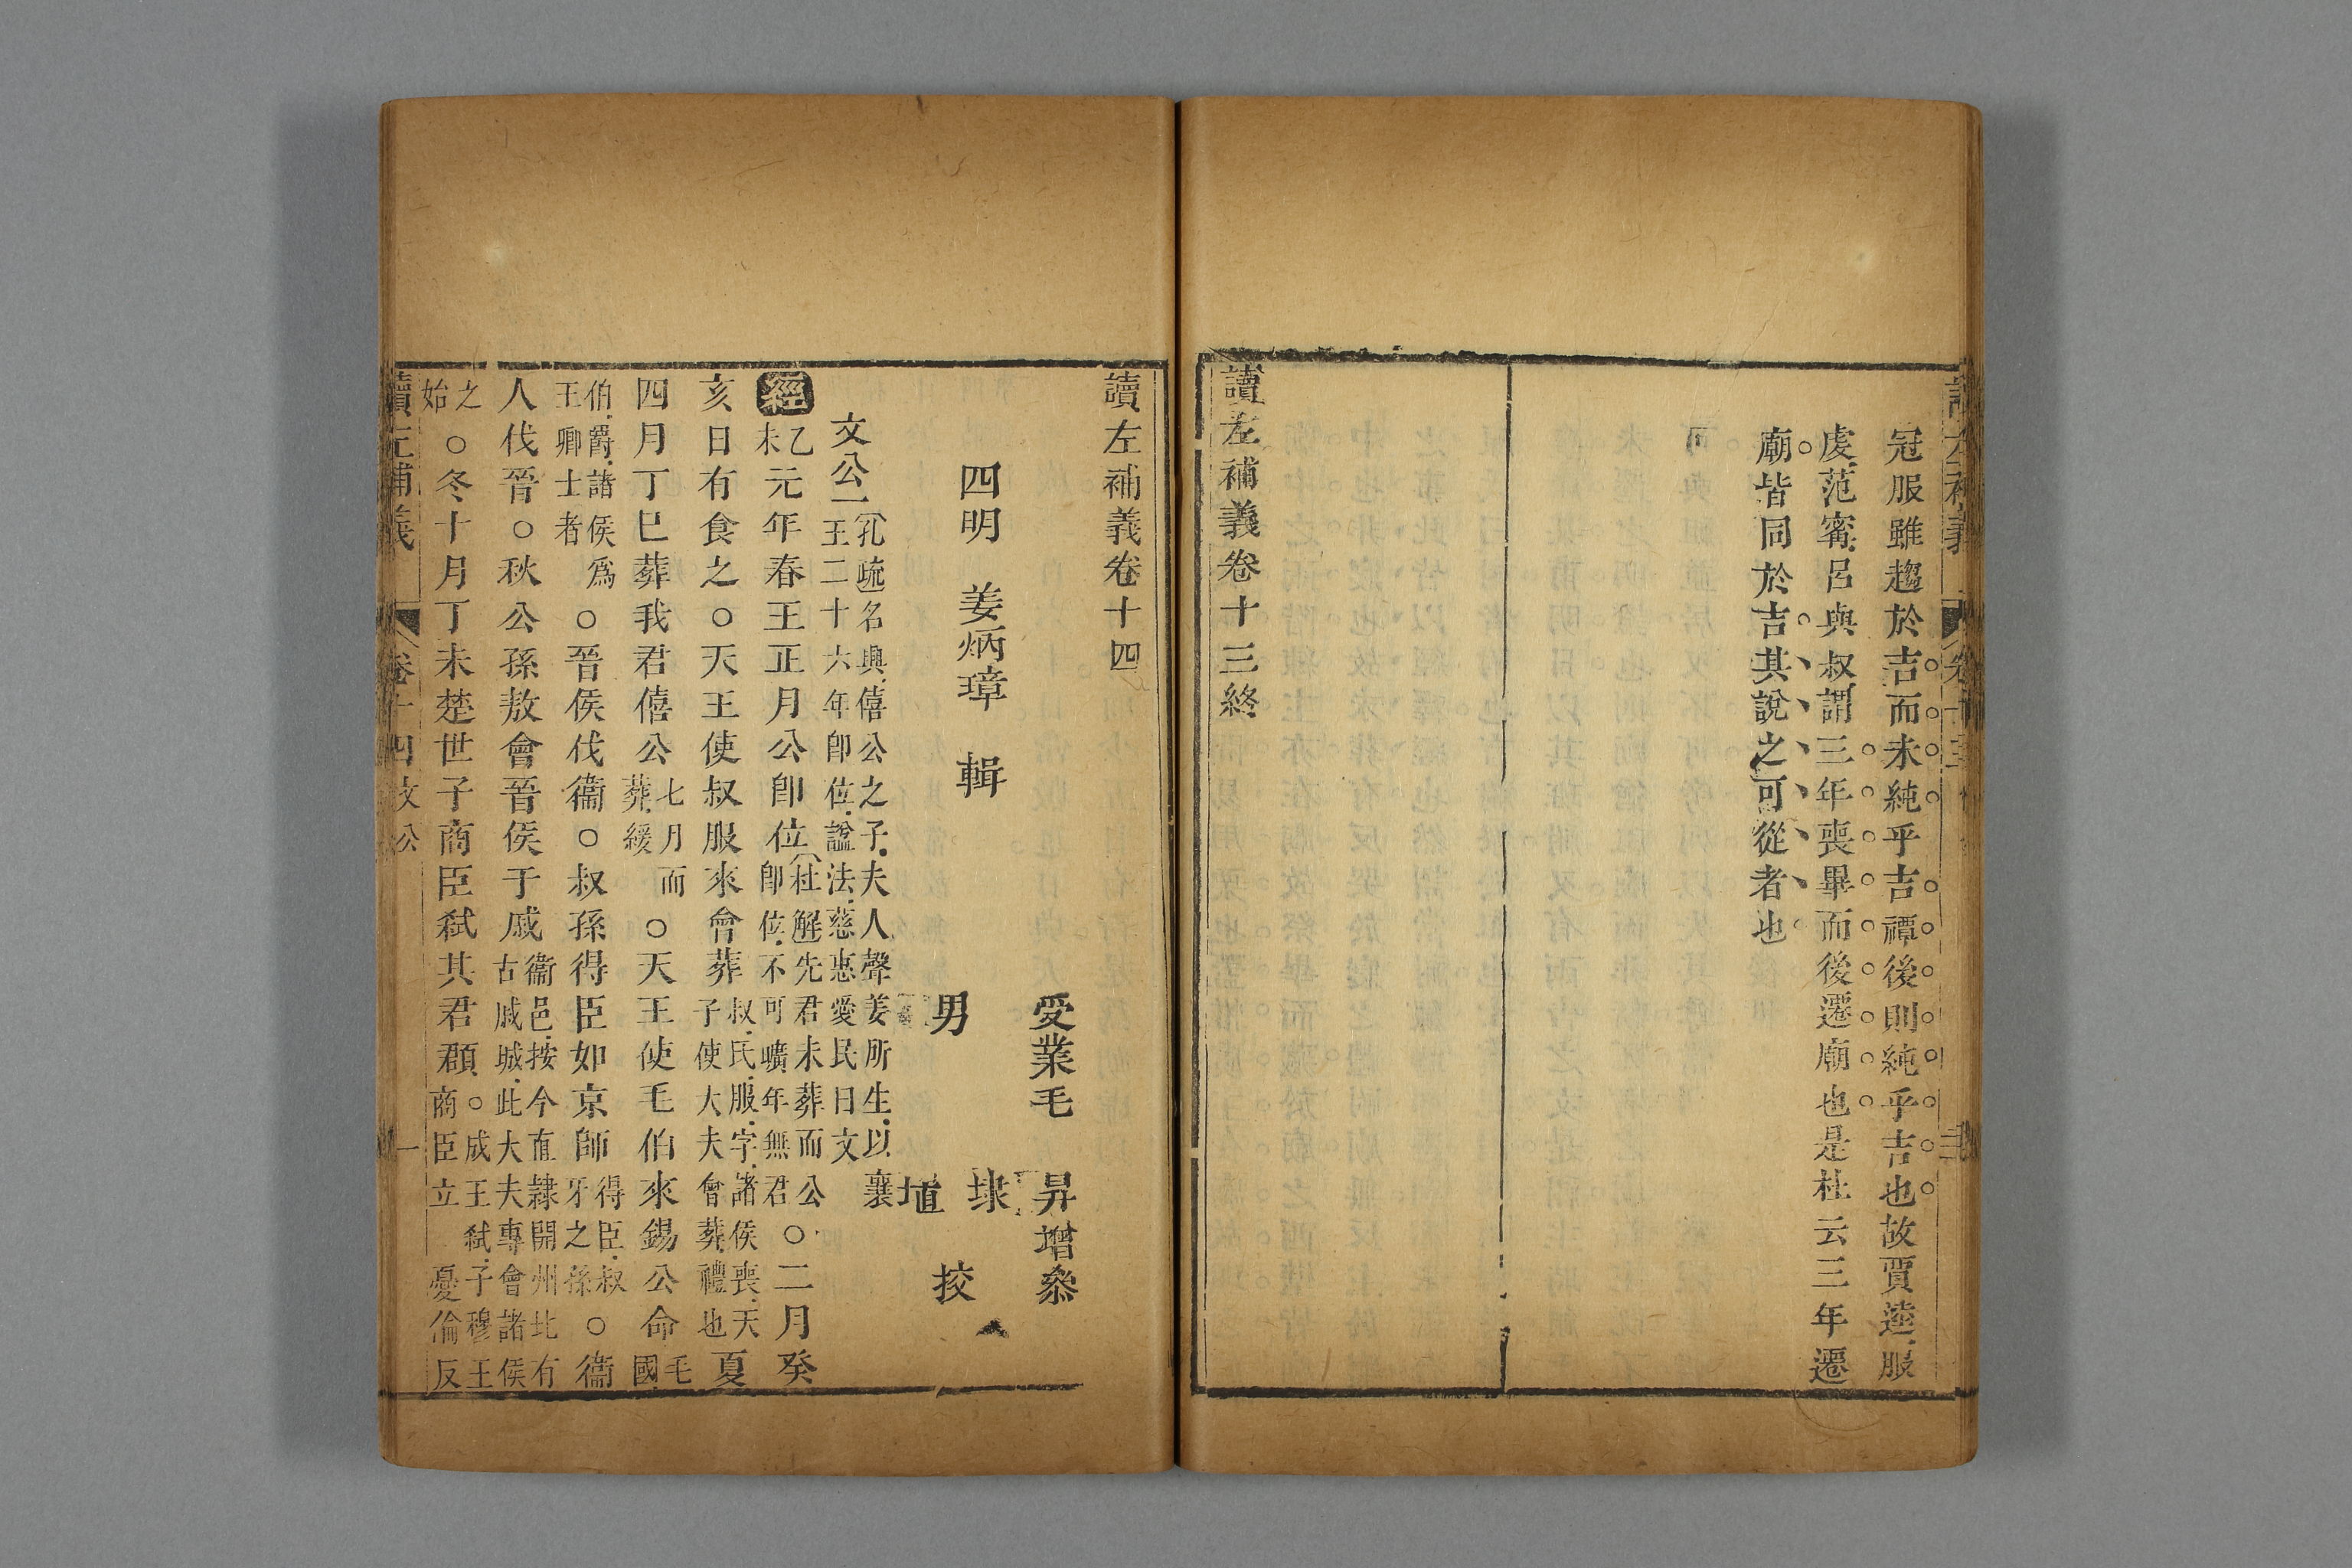 冠服雖趨於吉而未純乎吉禫後則純乎吉也故賈逵服
虔范甯呂與叔謂三年喪畢而後遷廟也是杜云三年遷
廟皆同於吉其說之可從者也
讀左補義卷十三終
讀左補義卷十四
受業毛 昇增叅
四明 姜炳璋 輯
男 埭 埴 挍
文公一 孔疏名興僖公之子夫人聲姜所生以襄
王二十六年卽位諡法慈惠愛民曰文
經 乙未 元年春王正月公卽位 杜解先君未葬而公卽位不可曠年無君 ○二月癸
亥日有食之○天王使叔服來會葬 叔氏服字諸侯喪天子使大夫會葬禮也 夏
四月丁巳葬我君僖公 七月而葬緩 ○天王使毛伯來錫公命 毛國
伯爵諸侯爲王卿士者 ○晉侯伐衞○叔孫得臣如京師 得臣叔牙之孫 ○衞
人伐晉○秋公孫敖會晉侯于戚 衞邑按今直隸開州北有古戚城此大夫專會諸侯
之始 ○冬十月丁未楚世子商臣弑其君頵 ○成王弑子穆王商臣立 憂倫反
讀左補義 卷十四 文公 一